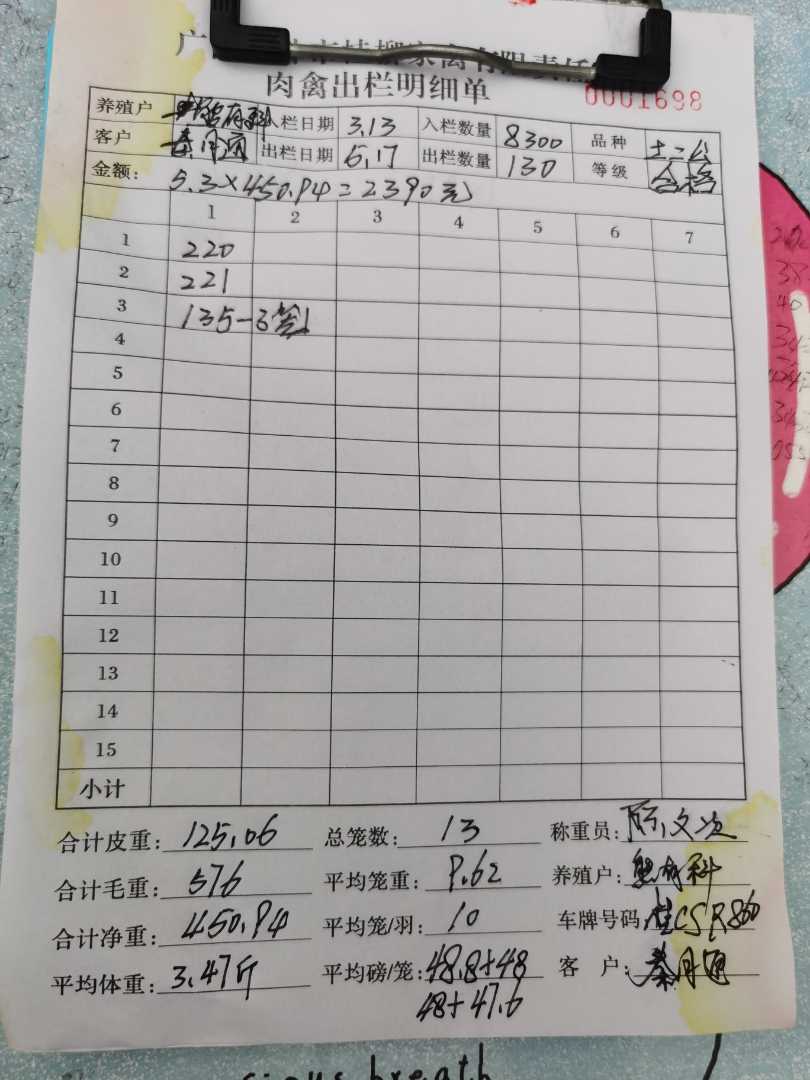 肉禽出栏明细单
0001698
养殖户 入栏日期 3.13 入栏数量 8300 品种 土二公
客户 秦月通 出栏日期 6.17 出栏数量 130 等级 合格
金额: 5.3×450.94=2390元
1 2 3 4 5 6 7
1 220
2 221
3 135-3笼
4
5
6
7
8
9
10
11
12
13
14
15
小计
合计皮重: 125.06 总笼数: 13 称重员:
合计毛重: 576 平均笼重: 9.62 养殖户: 熊有科
合计净重: 450.94 平均笼/羽: 10 车牌号码: 桂CSR860
平均体重: 3.47斤 平均磅/笼: 48.8+48 客 户: 秦月通
48+47.6